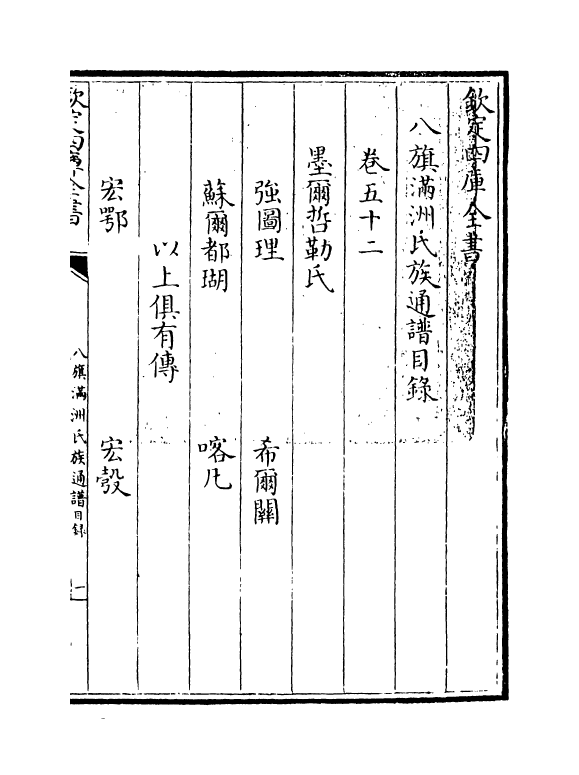 欽定四庫全書
八旗滿洲氏族通譜目錄
卷五十二
墨爾哲勒氏
強圖理　希爾關
蘇爾都瑚　喀凡
以上俱有傳
宏鄂　宏彀
欽定四庫全書
八旗滿洲氏族通譜目錄
一